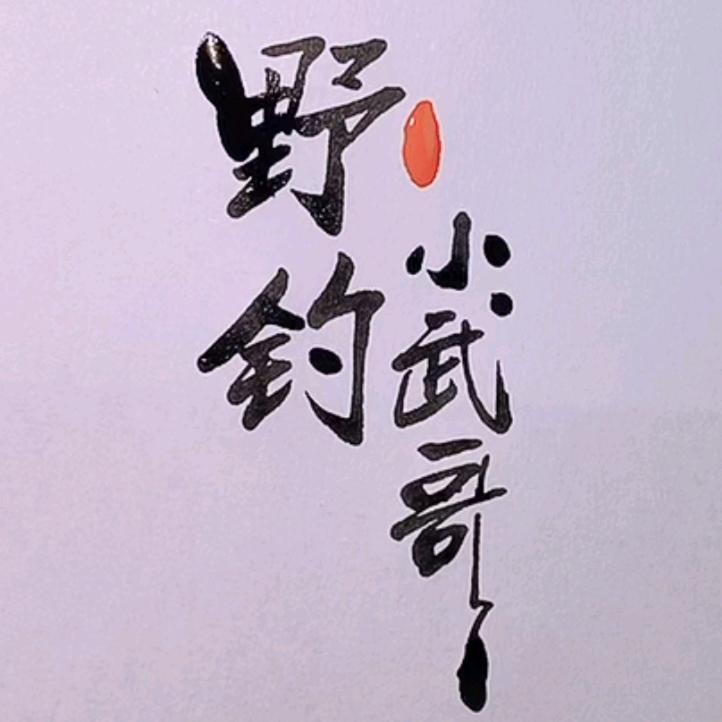 野钓
小武哥